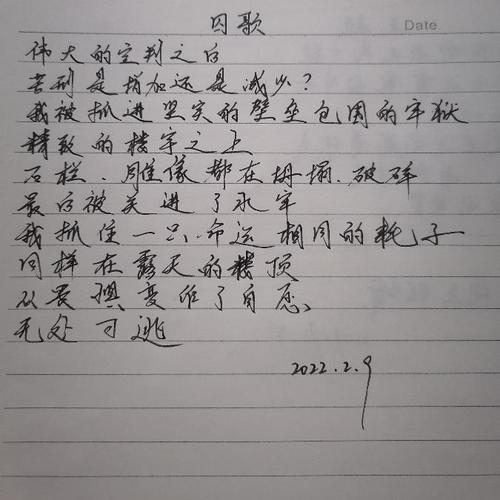 囚歌
Date
伟大的宣判之日
苦刑是增加还是减少？
我被抓进坚实的壁垒包围的牢狱
精致的楼宇之上
石栏、雕像都在坍塌、破碎
最后被关进了永牢
我抓住一只命运相同的耗子
同样在露天的楼顶
从畏惧变作了自愿、
无处可逃
2022.2.9